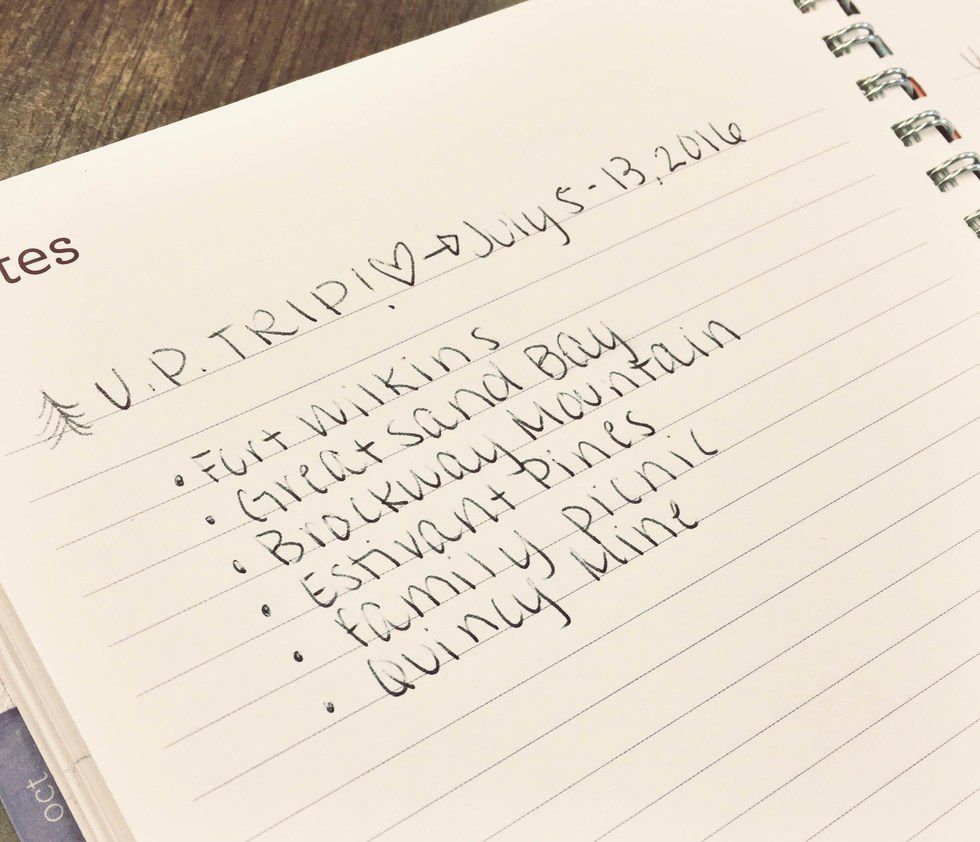 tes
U.P. TRIP! ♡→ July 5-13, 2016
• Fort Wilkins
• Great Sand Bay
• Brockway Mountain
• Estivant Pines
• Family Picnic
• Quincy Mine
oct